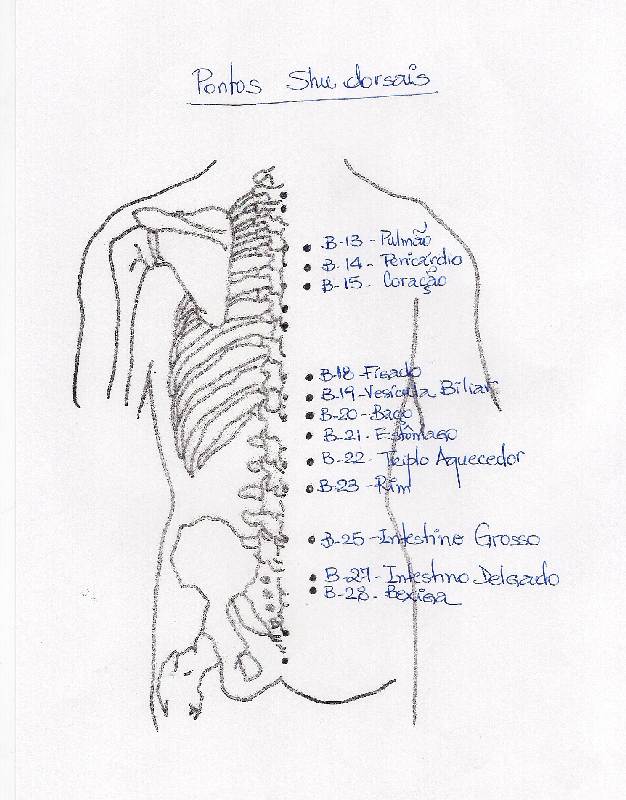 Pontos Shu dorsais
B-13 - Pulmão
B-14 - Pericárdio
B-15 - Coração
B-18 - Fígado
B-19 - Vesícula Biliar
B-20 - Baço
B-21 - Estômago
B-22 - Triplo Aquecedor
B-23 - Rim
B-25 - Intestino Grosso
B-27 - Intestino Delgado
B-28 - Bexiga